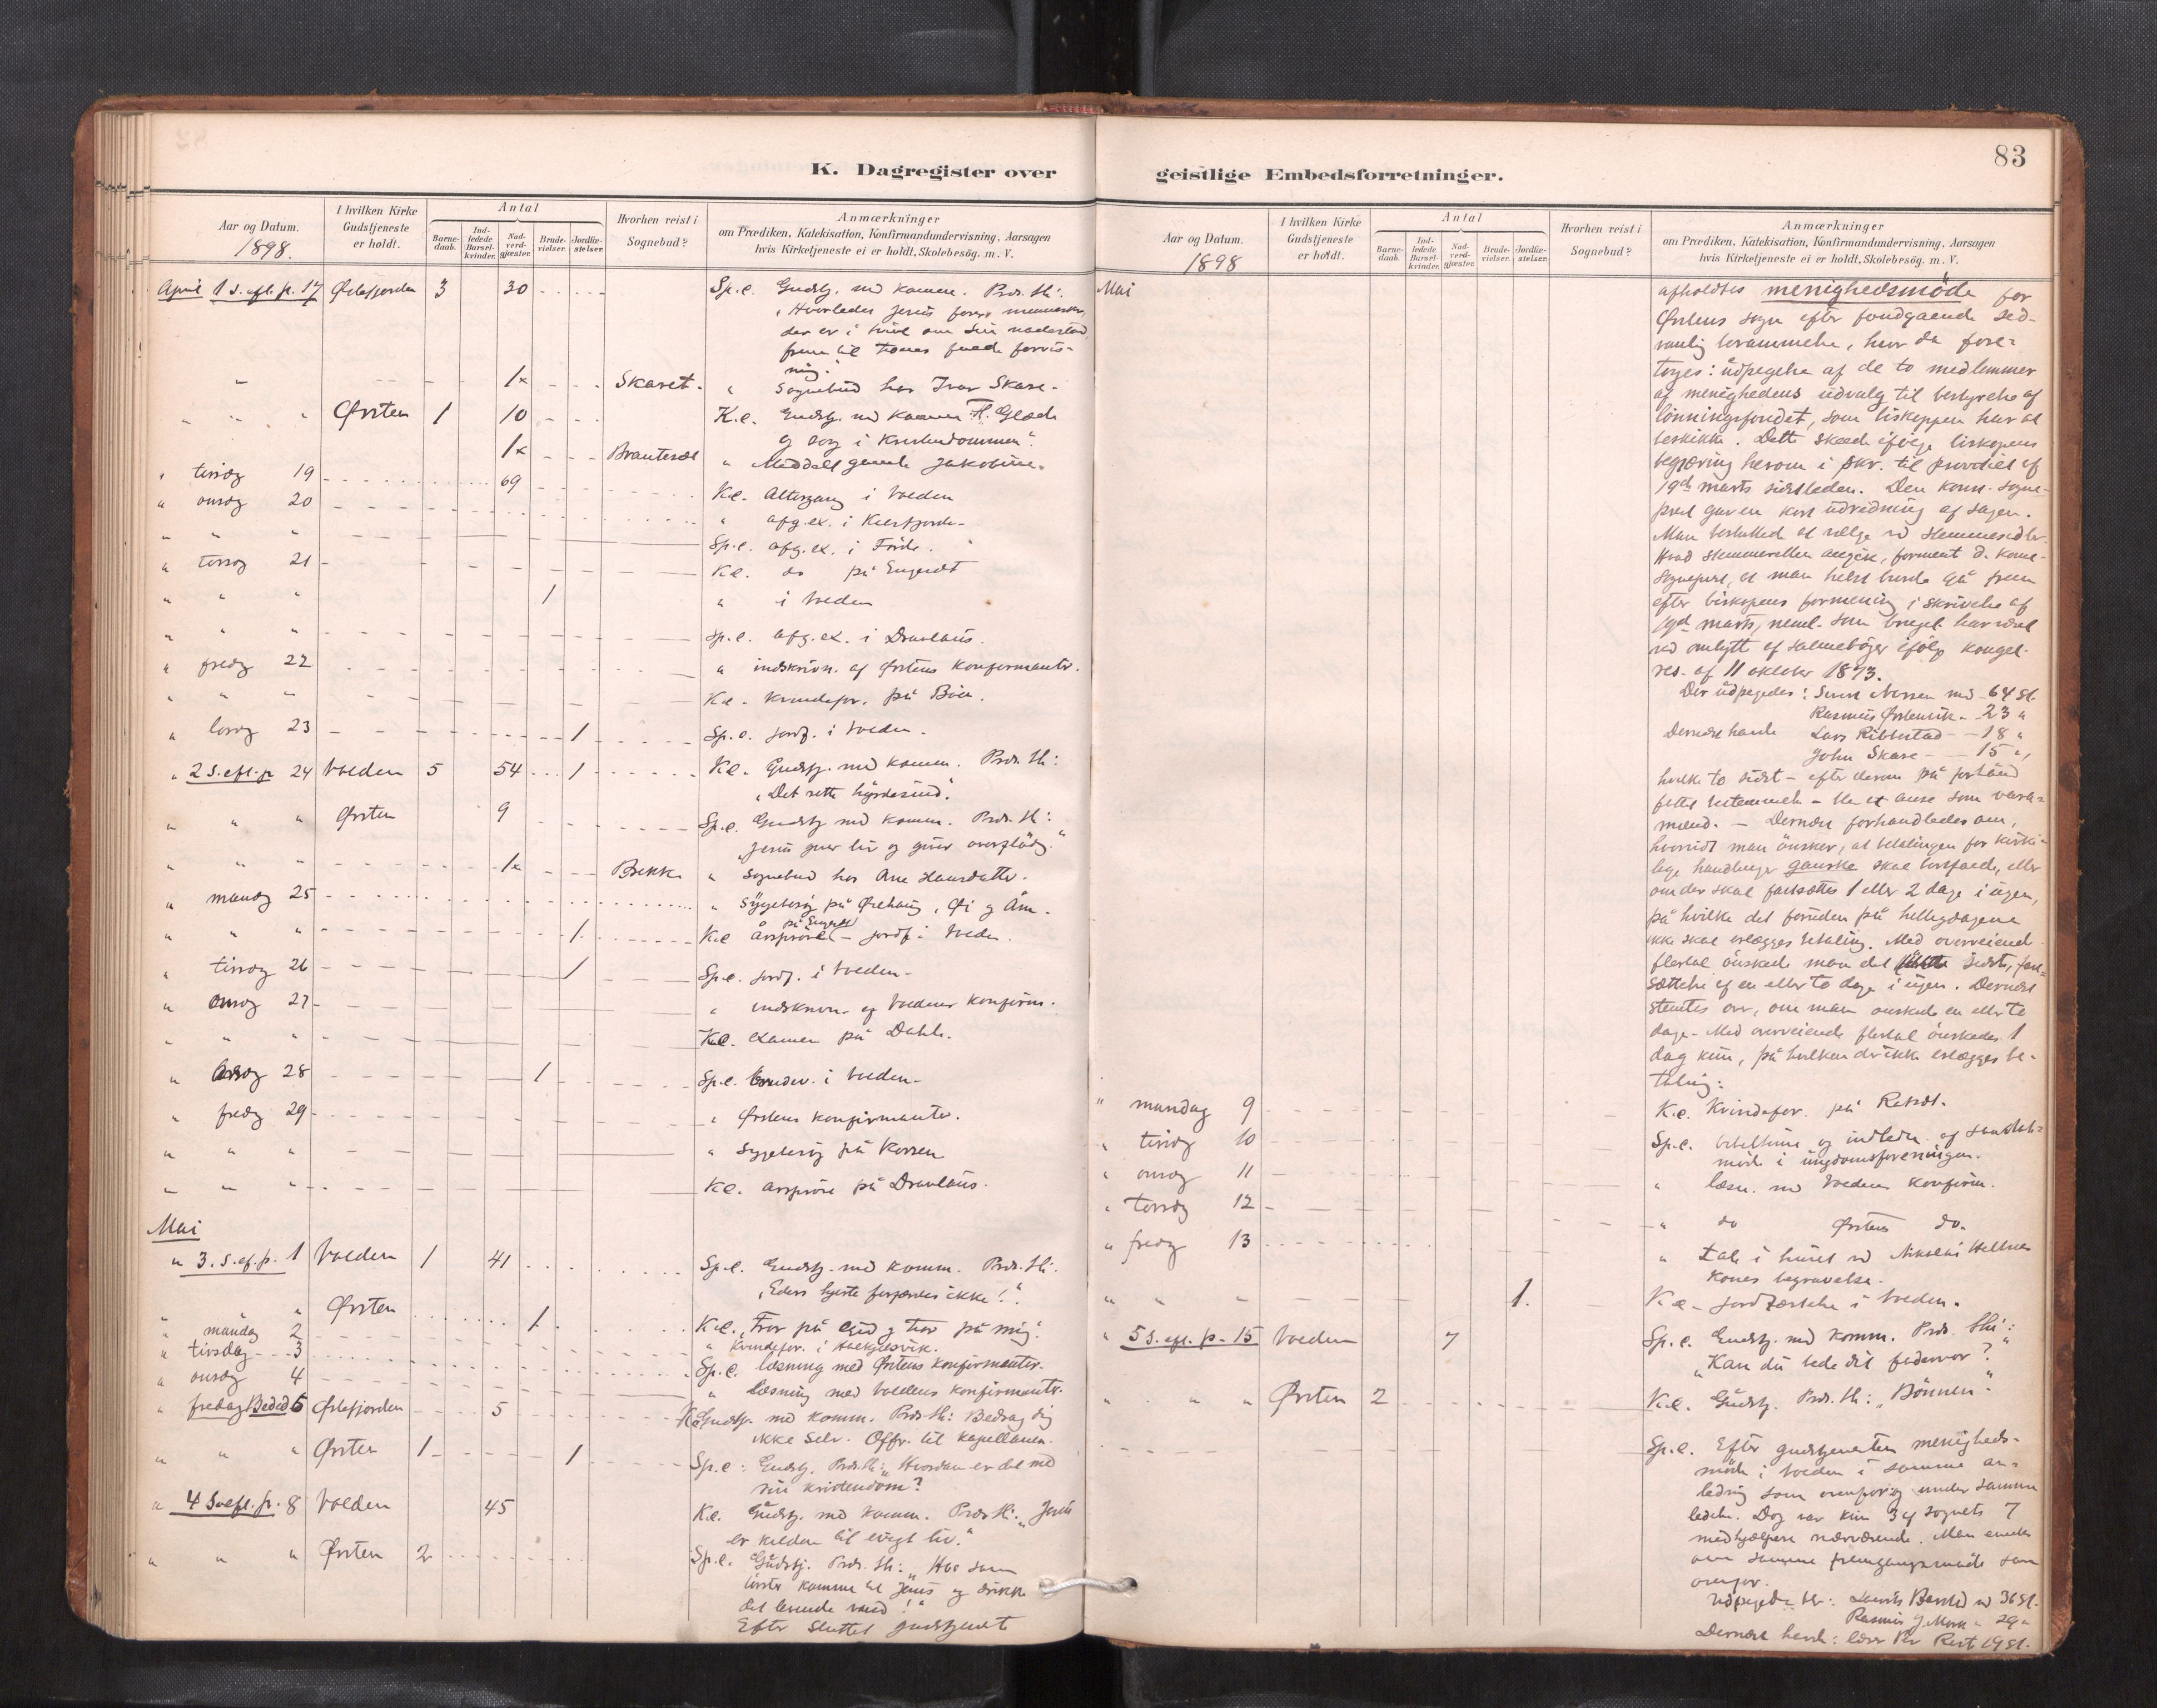 83
K. Dagregister over
Aar og Datum.
1898.
I hvilken Kirke Gudstjeneste er holdt.
Antal
Barnedaab.
Indledede Barselkvinder.
Nadverdgjæster.
Brudevielser.
Jordfæstelser.
Hvorhen reist i Sognebud?
Anmærkninger
om Prædiken, Katekisation, Konfirmandundervisning, Aarsagen
hvis Kirketjeneste ei er holdt, Skolebesög. m. V.
April 1 S. eft. p. 17 Ørstefjorden 3 30 Sp.e. Gudstj. med komm. Præd. th:
"Hvorledes Jesus fører mennesker,
der er i tvivl om sin
frem til troens forvis-
ning."
1x Skaret. " Sognebud hos Ivar Skare.
" " " Ørsten 1 10 K.e. Gudstj. med komm. Th. Glæde
og sorg i kristendommen".
1x
" tirsdg 19 69 K.e. Altergang i Volden
" onsdg 20 " afg. ex. i
" " " Sp.e. afg. ex. i
" torsdg 21 K.e. do på Engeset
" " " 1 " i Volden
" " " Sp.e. afg. ex. i Dravlaus.
" fredg 22 " indskrivn. af Ørstens konfirmanter.
" " " K.e. Kvindefor. på
" lørdg 23 1 Sp.e. jordf. i Volden.
" 2 S. eft. p. 24 Volden 5 54 1 K.e. Gudstj. med komm. Præd. th:
"Det rette hyrdesind".
" " " Ørsten 9 Sp.e. Gudstj. med komm. Præd. th:
"Jesus giver liv og giver overflødig."
" " " 1x Brekke " Sognebud hos Ane Hansdatter.
" mandg 25 " Sygebesög på og Åm.
" " " 1. K.e. årsprøve på Engeset - jordf. i Volden.
" tirsdg 26 1 Sp.e. jordf. i Volden.
" onsdg 27 " indskrivn. af Voldens konfirm.
" " " K.e. examen på Dahle.
" torsdg 28 1 Sp.e. brudev. i Volden.
" fredg 29 " Ørstens konfirmanter.
" " " " Sygebesög på
" " " K.e. årsprøve på Dravlaus.
Mai
" 3. S. ef. p. 1 Volden 1 41 Sp.e. Gudstj. med komm. Præd. th:
"Eders hjerte forfærdes ikke!".
" " " Ørsten 1. K.e. "Tror på Gud og tror på mig".
" mandag 2 " Kvindefor. i
" tirsdag 3 Sp.e. læsning med Ørstens konfirmanter.
" onsdg 4 " læsning med Voldens konfirmanter.
" fredag Beded. 6 Ørstefjorden 5 K.e. Gudstj. med komm. Præd. th: Bedrag dig
ikke selv. Offr. til kapellanen.
" " " Ørsten 1 1 Sp.e. Gudstj. Præd. th: "Hvordan er det med
din kristendom?
" 4 S. eft. p. 8 Volden 45 K.e. Gudstj. med komm. Præd. th: "Jesus
er kilden til evigt liv."
" " " Ørsten 2 Sp.e. Gudstj. Præd. th: "Hver som
tørster komme til Jesus og drikke
det levende vand!"
Efter sluttet gudstjenest
geistlige Embedsforretninger.
Aar og Datum.
1898
I hvilken Kirke Gudstjeneste er holdt.
Antal
Barnedaab.
Indledede Barselkvinder.
Nadverdgjæster.
Brudevielser.
Jordfæstelser.
Hvorhen reist i Sognebud?
Anmærkninger
om Prædiken, Katekisation, Konfirmandundervisning, Aarsagen
hvis Kirketjeneste ei er holdt, Skolebesög. m. V.
Mai afholdtes menighedsmöde for
Ørstens sogn efter foudgaaende sed-
vanlig berammelse, hvor da fore-
toges: udpegelse af de to medlemmer
af menighedens udvalg til bestyrelse af
lönningsfondet, som biskoppen har at
beskikke. Dette skede ifølge biskopens
begjæring herom i skr. til provstiet af
19de marts sidstleden. Den konst. sogne-
prest gav en kort udredning af sagen.
Man besluttede at vælge ved stemmesedler.
Hvad stemmeretten angik, forment d. konst.
sogneprest, at man helst burde gå frem
efter biskopens formening i skrivelse af
19de marts, nemlig som brugel. har været
ved ombytt af salmebøger ifølg kongel.
res. af 11 oktober 1873.
Der udpegedes: med 64 st.
Rasmus Ørstenvik - 23 "
Dernæst havde Lars Ribbestad - 18 "
John Skare - 15 ",
hvilke to sidst - efter derom på forhånd
fattet bestemmelse - er at anse som vara-
mænd. - Dernæst forhandledes om,
hvorvidt man önsker, at betalingen for kirke-
lige handlinger ganske skal bortfalde, eller
om der skal fastsættes 1 eller 2 dage i ugen,
på hvilke det foruden på helligdagene
ikke skal erlægges betaling. Med overveiende
flertal önskede man det sidste, fast-
sættelse af en eller to dage i ugen. Dernæst
stemtes over, om man önskede en eller to
dage. Med overveiende flertal önskedes 1
dag kun, på hvilken der ikke erlægges be-
taling.
" mandag 9 K.e. Kvindefor. på
" tirsdg 10 Sp.e. bibeltime og indledn. af samtale-
möde i ungdomsforeningen.
" onsdg 11 " læsn. med Voldens konfirm.
" torsdg 12 " do Ørstens do.
" fredg 13 " tale i huset ved Nikolai
kones begravelse.
" " " 1. K.e. jordfæstelse i Volden.
" 5 S. eft. p. 15 Volden 7 Sp.e. Gudstj. med komm. Præd. th:
"Kan du bede dit fadervor?"
" " " Ørsten 2 K.e. Gudstj. Præd. th: "Bönnen".
Sp.e. Efter gudstjenesten menigheds-
möde i Volden i samme an-
ledning som ovenfor og under samme
ledelse. Dog var kun 3 af sognets 7
medhjælpere nærværende. Man enedes
om samme fremgangsmåde som
ovenfor.
Udpegede blev: ved 36 st.
Rasmus - 29 "
Dernæst havde: 19 st.